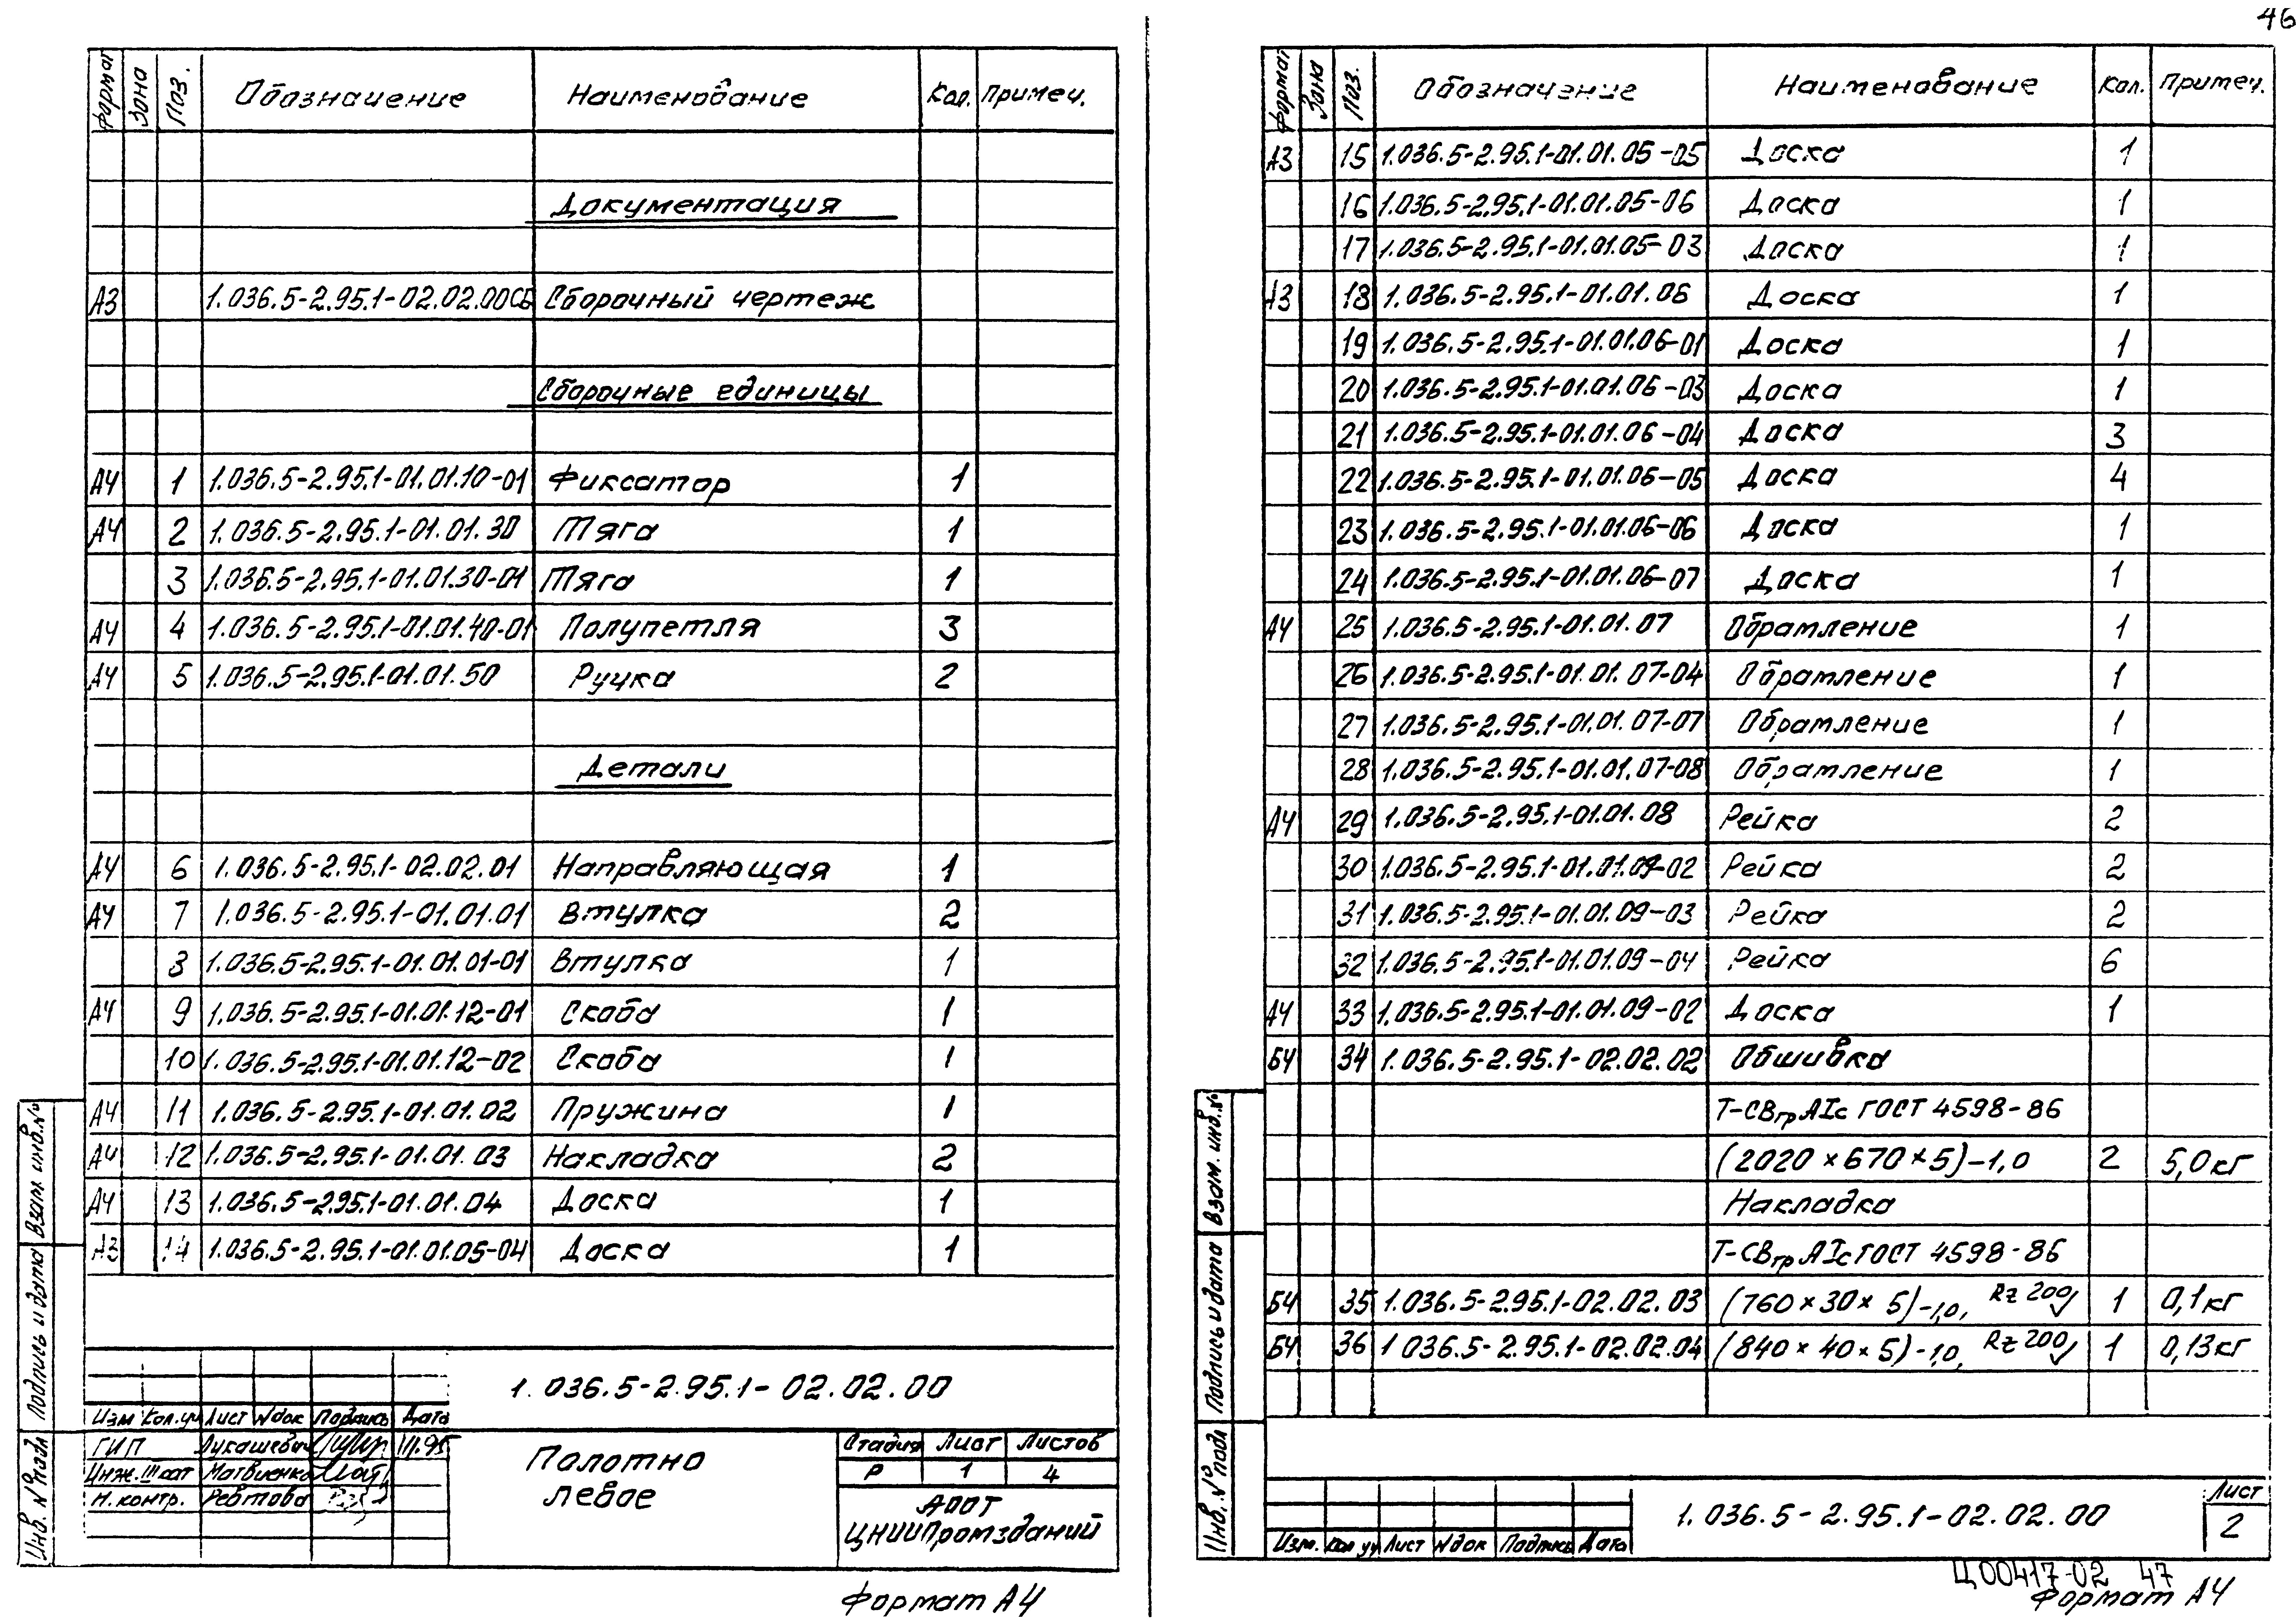 46
Формат Зона Поз. Обозначение Наименование Кол. Примеч.
Документация
А3 1.036.5-2.95.1-02.02.00СБ Сборочный чертеж
Сборочные единицы
А4 1 1.036.5-2.95.1-01.01.10-01 Фиксатор 1
А4 2 1.036.5-2.95.1-01.01.30 Тяга 1
3 1.036.5-2.95.1-01.01.30-01 Тяга 1
А4 4 1.036.5-2.95.1-01.01.40-01 Полупетля 3
А4 5 1.036.5-2.95.1-01.01.50 Ручка 2
Детали
А4 6 1.036.5-2.95.1-02.02.01 Направляющая 1
А4 7 1.036.5-2.95.1-01.01.01 Втулка 2
8 1.036.5-2.95.1-01.01.01-01 Втулка 1
А4 9 1.036.5-2.95.1-01.01.12-01 Скоба 1
10 1.036.5-2.95.1-01.01.12-02 Скоба 1
А4 11 1.036.5-2.95.1-01.01.02 Пружина 1
А4 12 1.036.5-2.95.1-01.01.03 Накладка 2
А4 13 1.036.5-2.95.1-01.01.04 Доска 1
А3 14 1.036.5-2.95.1-01.01.05-04 Доска 1
1.036.5-2.95.1-02.02.00
Изм Кол.уч Лист Nдок Подпись Дата
ГИП Лукашевич 11.95
Инж. III кат Матвиенко
Н.контр. Ревтова
Полотно
левое
Стадия Лист Листов
Р 1 4
АООТ
ЦНИИПромзданий
Инв. № подл Подпись и дата Взам. инв. №
Формат А4
Формат Зона Поз. Обозначение Наименование Кол. Примеч.
А3 15 1.036.5-2.95.1-01.01.05-05 Доска 1
16 1.036.5-2.95.1-01.01.05-06 Доска 1
17 1.036.5-2.95.1-01.01.05-03 Доска 1
А3 18 1.036.5-2.95.1-01.01.06 Доска 1
19 1.036.5-2.95.1-01.01.06-01 Доска 1
20 1.036.5-2.95.1-01.01.06-03 Доска 1
21 1.036.5-2.95.1-01.01.06-04 Доска 3
22 1.036.5-2.95.1-01.01.06-05 Доска 4
23 1.036.5-2.95.1-01.01.06-06 Доска 1
24 1.036.5-2.95.1-01.01.06-07 Доска 1
А4 25 1.036.5-2.95.1-01.01.07 Обрамление 1
26 1.036.5-2.95.1-01.01.07-04 Обрамление 1
27 1.036.5-2.95.1-01.01.07-07 Обрамление 1
28 1.036.5-2.95.1-01.01.07-08 Обрамление 1
А4 29 1.036.5-2.95.1-01.01.08 Рейка 2
30 1.036.5-2.95.1-01.01.09-02 Рейка 2
31 1.036.5-2.95.1-01.01.09-03 Рейка 2
32 1.036.5-2.95.1-01.01.09-04 Рейка 6
А4 33 1.036.5-2.95.1-01.01.09-02 Доска 1
Б4 34 1.036.5-2.95.1-02.02.02 Обшивка
Т-СВгр АIс ГОСТ 4598-86
(2020×670×5)-1,0 2 5,0кг
Накладка
Т-СВгр АIс ГОСТ 4598-86
Б4 35 1.036.5-2.95.1-02.02.03 (760×30×5)-1,0, Rz200√ 1 0,1кг
Б4 36 1.036.5-2.95.1-02.02.04 (840×40×5)-1,0, Rz200√ 1 0,13кг
1.036.5-2.95.1-02.02.00
Изм. Кол уч Лист Nдок Подпись Дата
Лист
2
Инв. № подл Подпись и дата Взам. инв. №
Ц00417-02 47
Формат А4